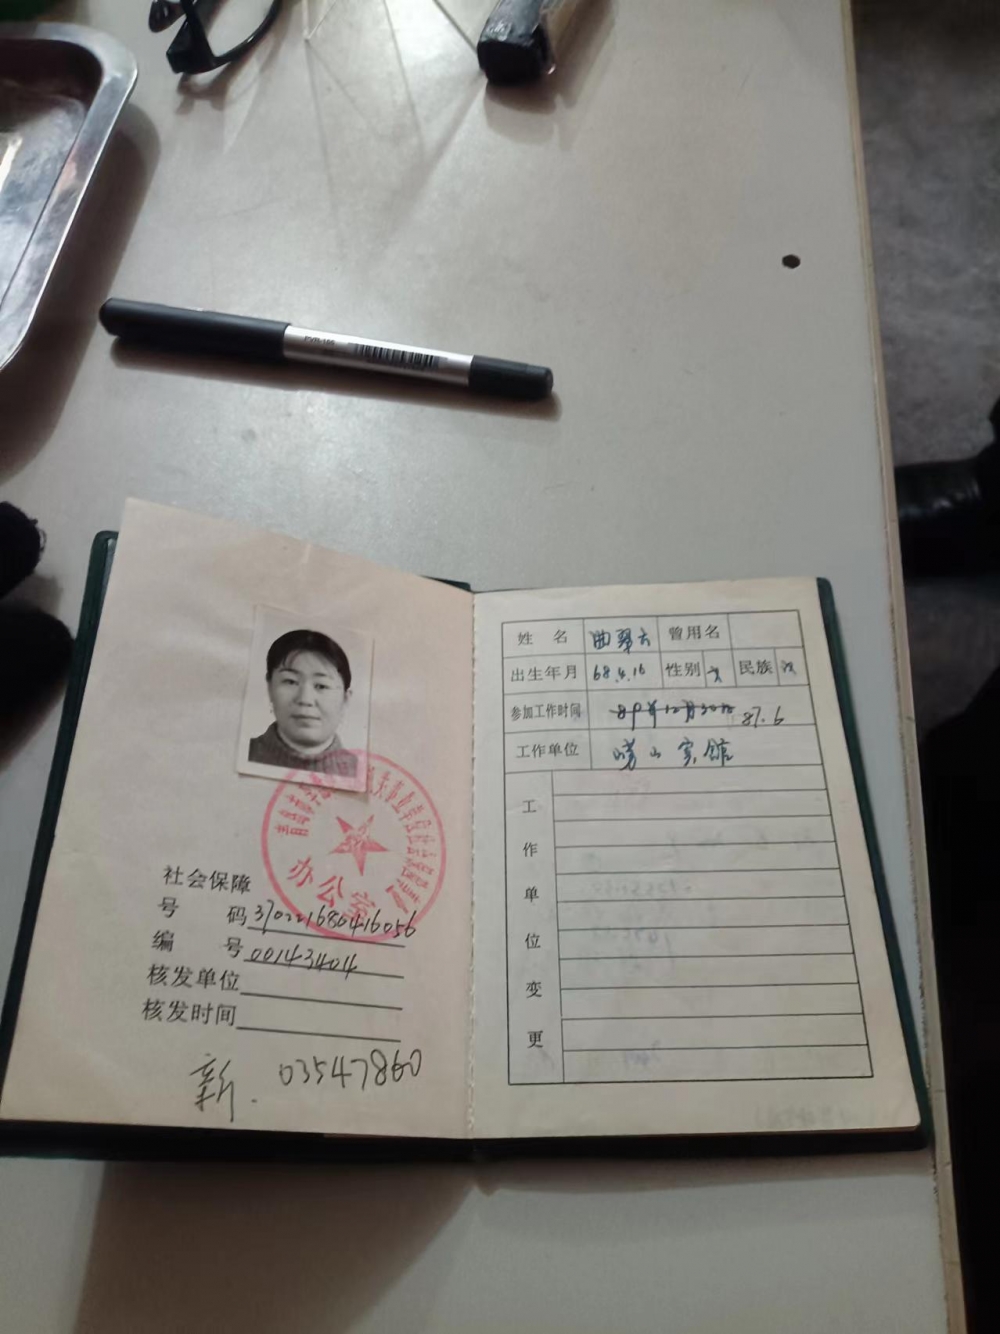 PVR-155
社会保障
号 码 370221680416056
编 号 00143404
核发单位
核发时间
办公室
新. 03547860
姓 名 曲翠云 曾用名
出生年月 68.4.16 性别 女 民族 汉
参加工作时间 89年12月30日 87.6
工作单位 崂山宾馆
工作单位变更